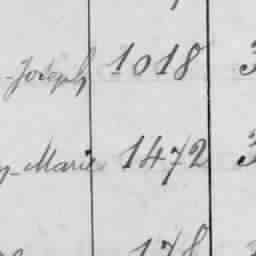 Joseph 1018 3
Marie 1472 3
178